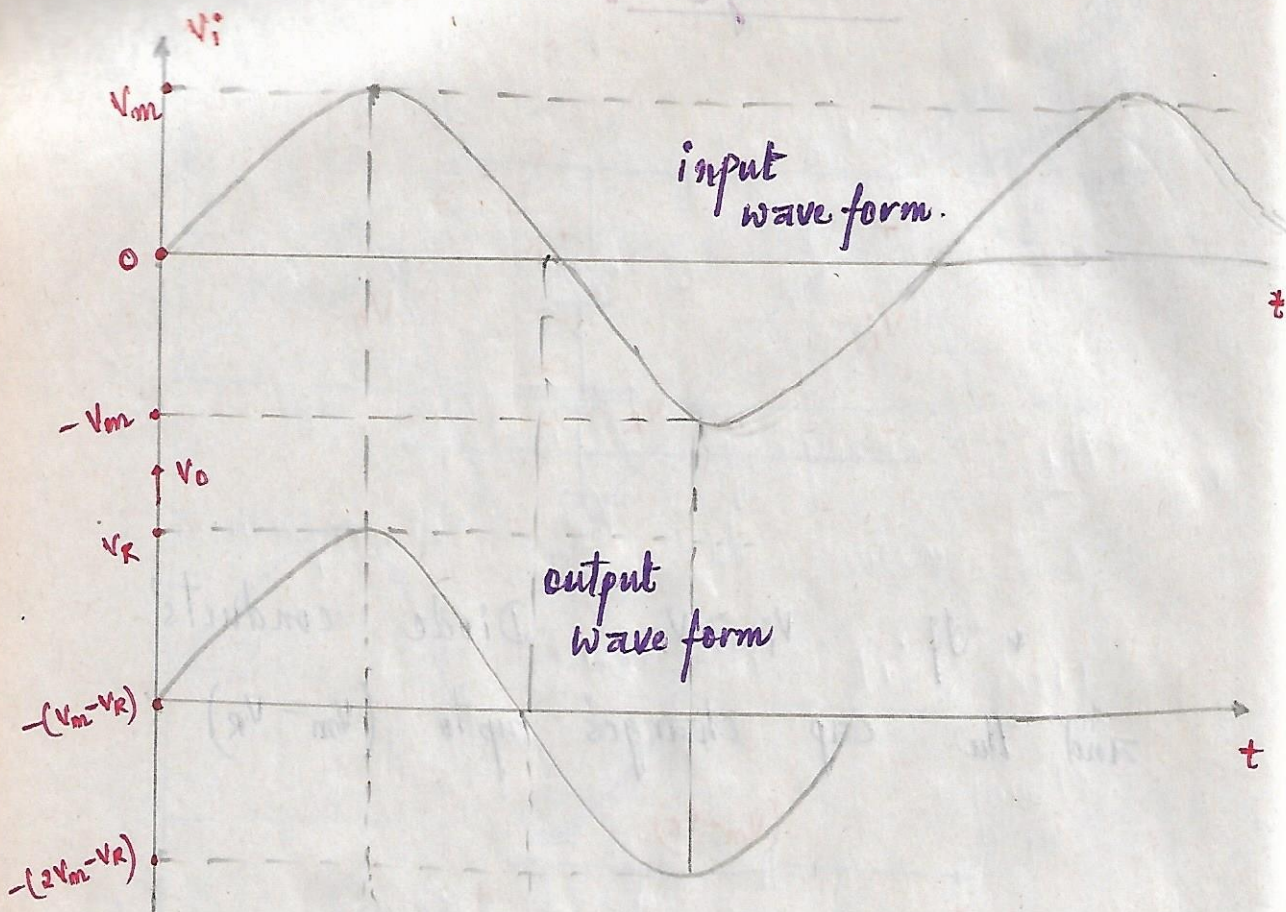 Vi
Vm
input
wave form.
0
t
-Vm
V0
VR
output
wave form
-(Vm-VR)
t
-(2Vm-VR)